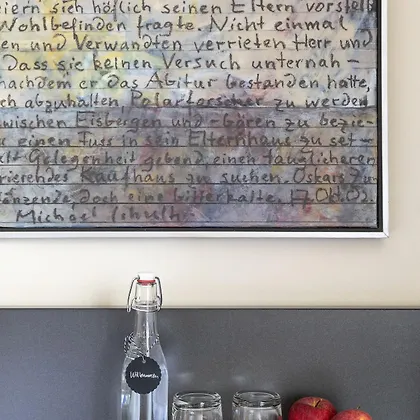 eiern sich höflich seinen Eltern vorstell
Wohlbefinden fragte. Nicht einmal
en und Verwandten verrieten Herr und
Dass sie keinen Versuch unternah-
nachdem er das Abitur bestanden hatte,
ch abzuhalten, Polarforscher zu werden
wischen Eisbergen und -bären zu bezie-
r einen Fuss in sein Elternhaus zu set-
Gelegenheit gebend einen tauglicheren
rierendes Kaufhaus zu suchen. Oskars Zun
änzende, doch eine bitterkalte. 17. Okt. 02.
Michael
Willkommen